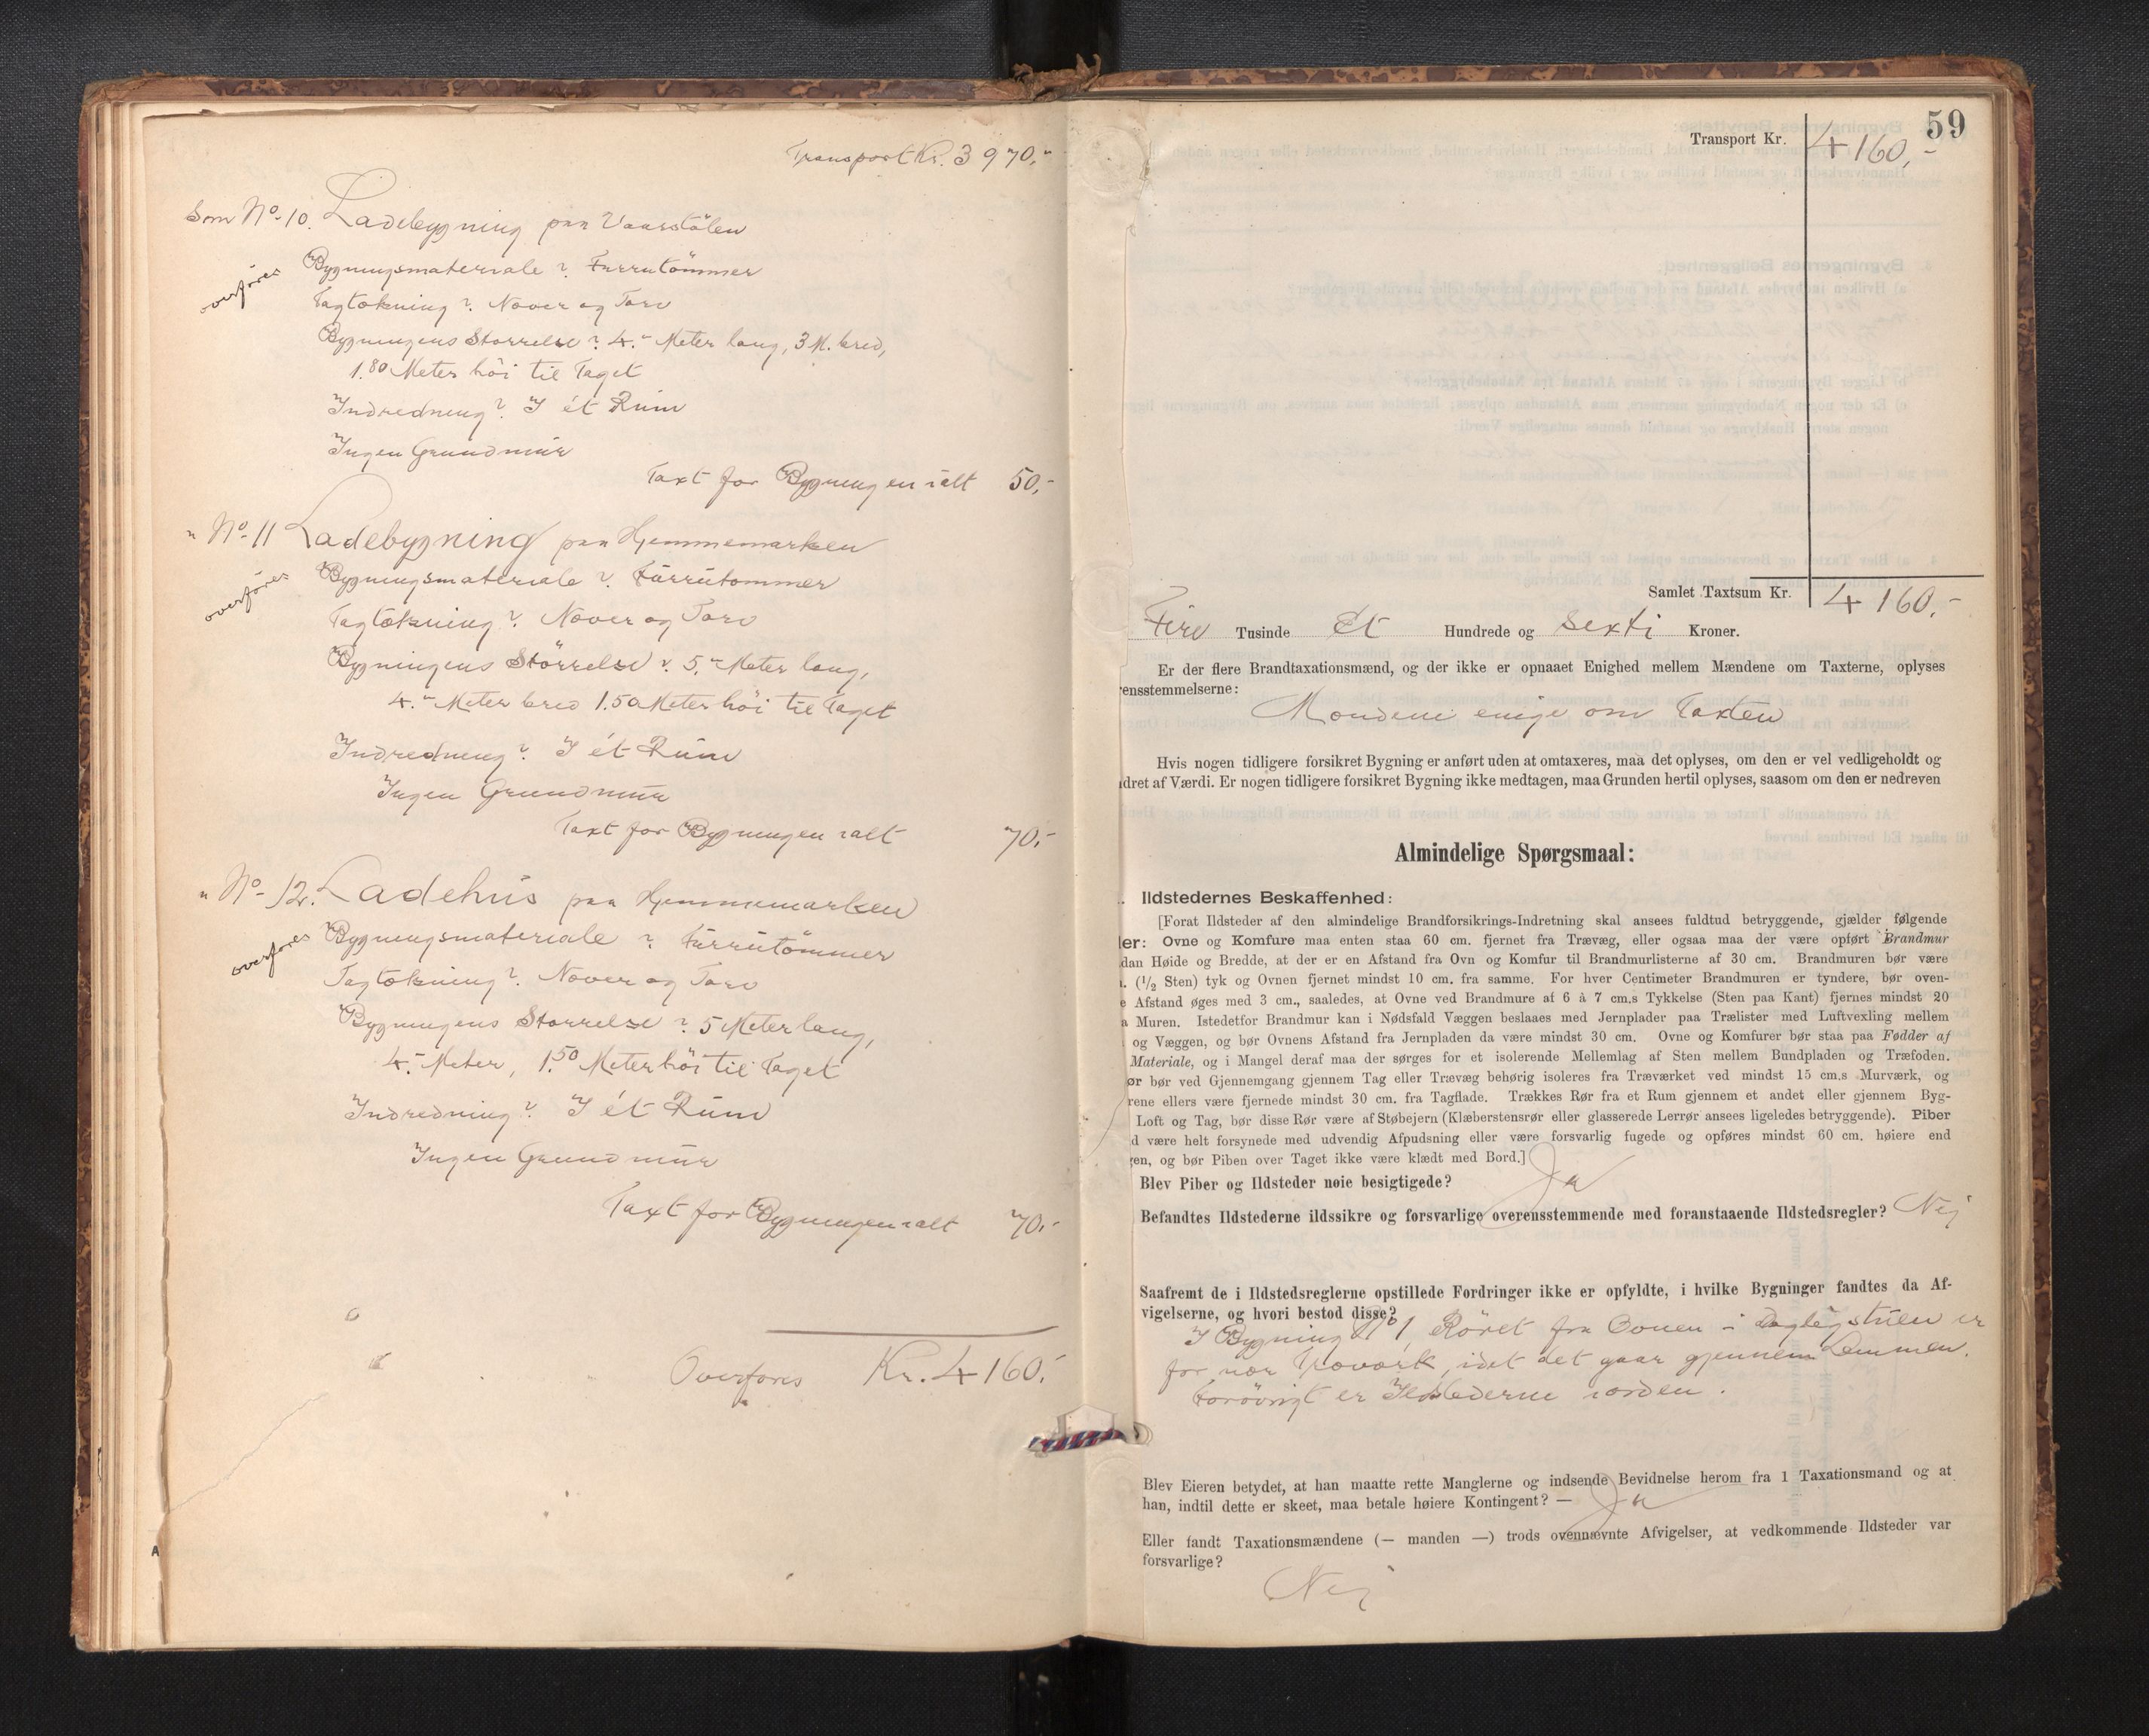 Transport Kr. 3 970,-
Som No 10. Ladebygning paa Vaarstölen
overføres
Bygningsmateriale? Furrutömmer
Tagtækning? Næver og Torv
Bygningens Størrelse? 4." Meter lang, 3 M. bred,
1.80 Meter höi til Taget
Indredning? I ét Rum
Ingen Grundmur
Taxt for Bygningen ialt 50,-
" No 11 Ladebygning paa Hjemmemarken
overføres
Bygningsmateriale? Furrutømmer
Tagtækning? Næver og Torv
Bygningens Störrelse? 5." Meter lang,
4." Meter bred 1.50 Meter höi til Taget
Indredning? I ét Rum
Ingen Grundmur
Taxt for Bygningen ialt 70,-
" No 12. Ladehus paa Hjemmemarken
overføres
Bygningsmateriale? Furrutömmer
Tagtækning? Næver og Torv
Bygningens Størrelse? 5 Meter lang,
4.- Meter, 1.50 Meter höi til Taget
Indredning? I ét Rum
Ingen Grundmur
Taxt for Bygningen ialt 70,-
Overføres Kr. 4 160,-
59
Transport Kr. 4 160,-
Samlet Taxtsum Kr. 4 160,-
Fire Tusinde Et Hundrede og Sexti Kroner.
Er der flere Brandtaxationsmænd, og der ikke er opnaaet Enighed mellem Mændene om Taxterne, oplyses
ensstemmelserne:
Mændene enige om Taxten
Hvis nogen tidligere forsikret Bygning er anført uden at omtaxeres, maa det oplyses, om den er vel vedligeholdt og
dret af Værdi. Er nogen tidligere forsikret Bygning ikke medtagen, maa Grunden hertil oplyses, saasom om den er nedreven
Almindelige Spørgsmaal:
. Ildstedernes Beskaffenhed:
[Forat Ildsteder af den almindelige Brandforsikrings-Indretning skal ansees fuldtud betryggende, gjælder følgende
er: Ovne og Komfure maa enten staa 60 cm. fjernet fra Trævæg, eller ogsaa maa der være opført Brandmur
dan Høide og Bredde, at der er en Afstand fra Ovn og Komfur til Brandmurlisterne af 30 cm. Brandmuren bør være
. (1/2 Sten) tyk og Ovnen fjernet mindst 10 cm. fra samme. For hver Centimeter Brandmuren er tyndere, bør oven-
e Afstand øges med 3 cm., saaledes, at Ovne ved Brandmure af 6 à 7 cm.s Tykkelse (Sten paa Kant) fjernes mindst 20
a Muren. Istedetfor Brandmur kan i Nødsfald Væggen beslaaes med Jernplader paa Trælister med Luftvexling mellem
og Væggen, og bør Ovnens Afstand fra Jernpladen da være mindst 30 cm. Ovne og Komfurer bør staa paa Fødder af
Materiale, og i Mangel deraf maa der sørges for et isolerende Mellemlag af Sten mellem Bundpladen og Træfoden.
ør bør ved Gjennemgang gjennem Tag eller Trævæg behørig isoleres fra Træværket ved mindst 15 cm.s Murværk, og
rene ellers være fjernede mindst 30 cm. fra Tagflade. Trækkes Rør fra et Rum gjennem et andet eller gjennem Byg-
Loft og Tag, bør disse Rør være af Støbejern (Klæberstensrør eller glasserede Lerrør ansees ligeledes betryggende). Piber
d være helt forsynede med udvendig Afpudsning eller være forsvarlig fugede og opføres mindst 60 cm. høiere end
en, og bør Piben over Taget ikke være klædt med Bord.]
Blev Piber og Ildsteder nøie besigtigede? Ja
Befandtes Ildstederne ildssikre og forsvarlige overensstemmende med foranstaaende Ildstedsregler? Nej
Saafremt de i Ildstedsreglerne opstillede Fordringer ikke er opfyldte, i hvilke Bygninger fandtes da Af-
vigelserne, og hvori bestod disse?
I Bygning No 1 Röret fra Ovnen i Dagligstuen er
for nær Træværk, idet det gaar gjennem Lemmen.
Forövrigt er Ildstederne iorden.
Blev Eieren betydet, at han maatte rette Manglerne og indsende Bevidnelse herom fra 1 Taxationsmand og at
han, indtil dette er skeet, maa betale høiere Kontingent? — Ja
Eller fandt Taxationsmændene (— manden —) trods ovennævnte Afvigelser, at vedkommende Ildsteder var
forsvarlige?
Nej